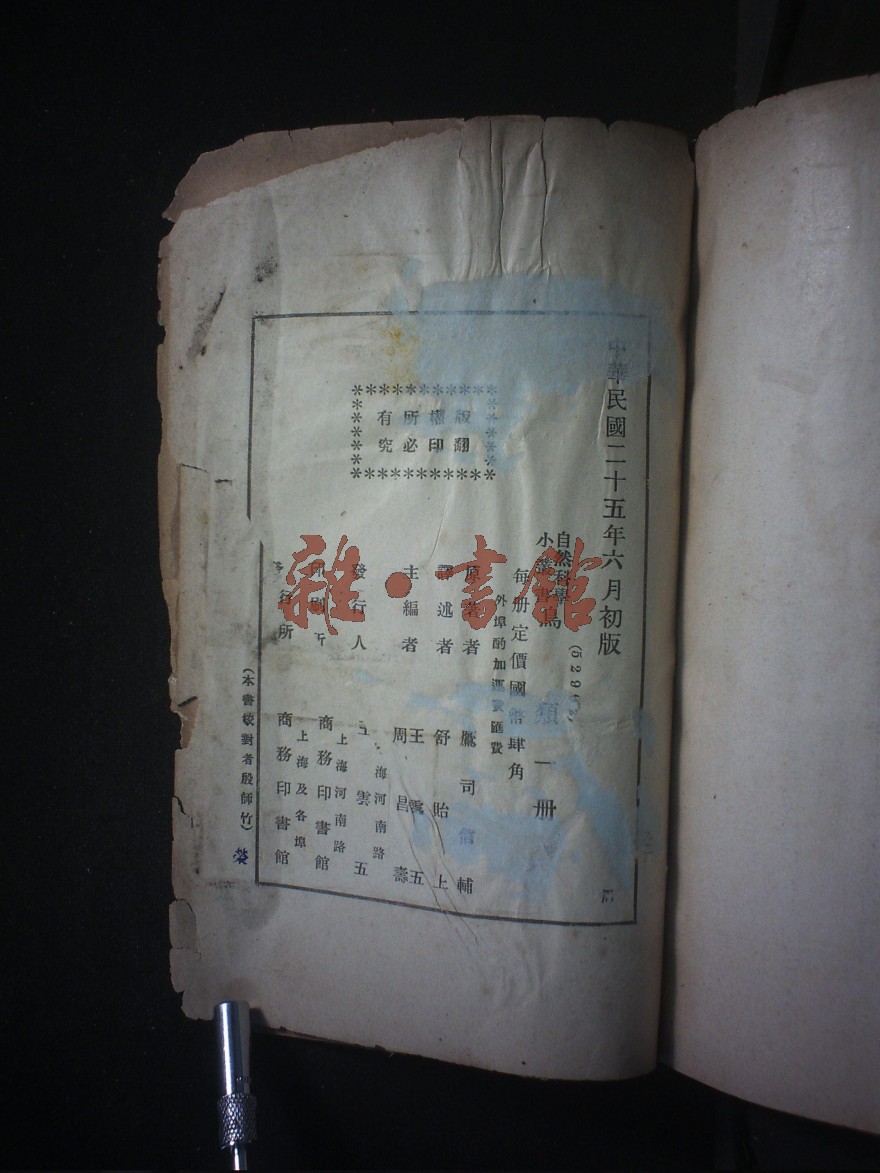 中華民國二十五年六月初版
(5291
自然科學
小叢書鳥類一冊
每册定價國幣肆角
外埠酌加運費匯費
版權所有
翻印必究
原著者 鷹司信輔
譯述者 舒貽上
主編者 王雲五
周昌壽
發行人 王雲五
海河南路
印刷所 商務印書館
上海河南路
發行所 商務印書館
上海及各埠
(本書校對者殷師竹)
榮
雜·書館